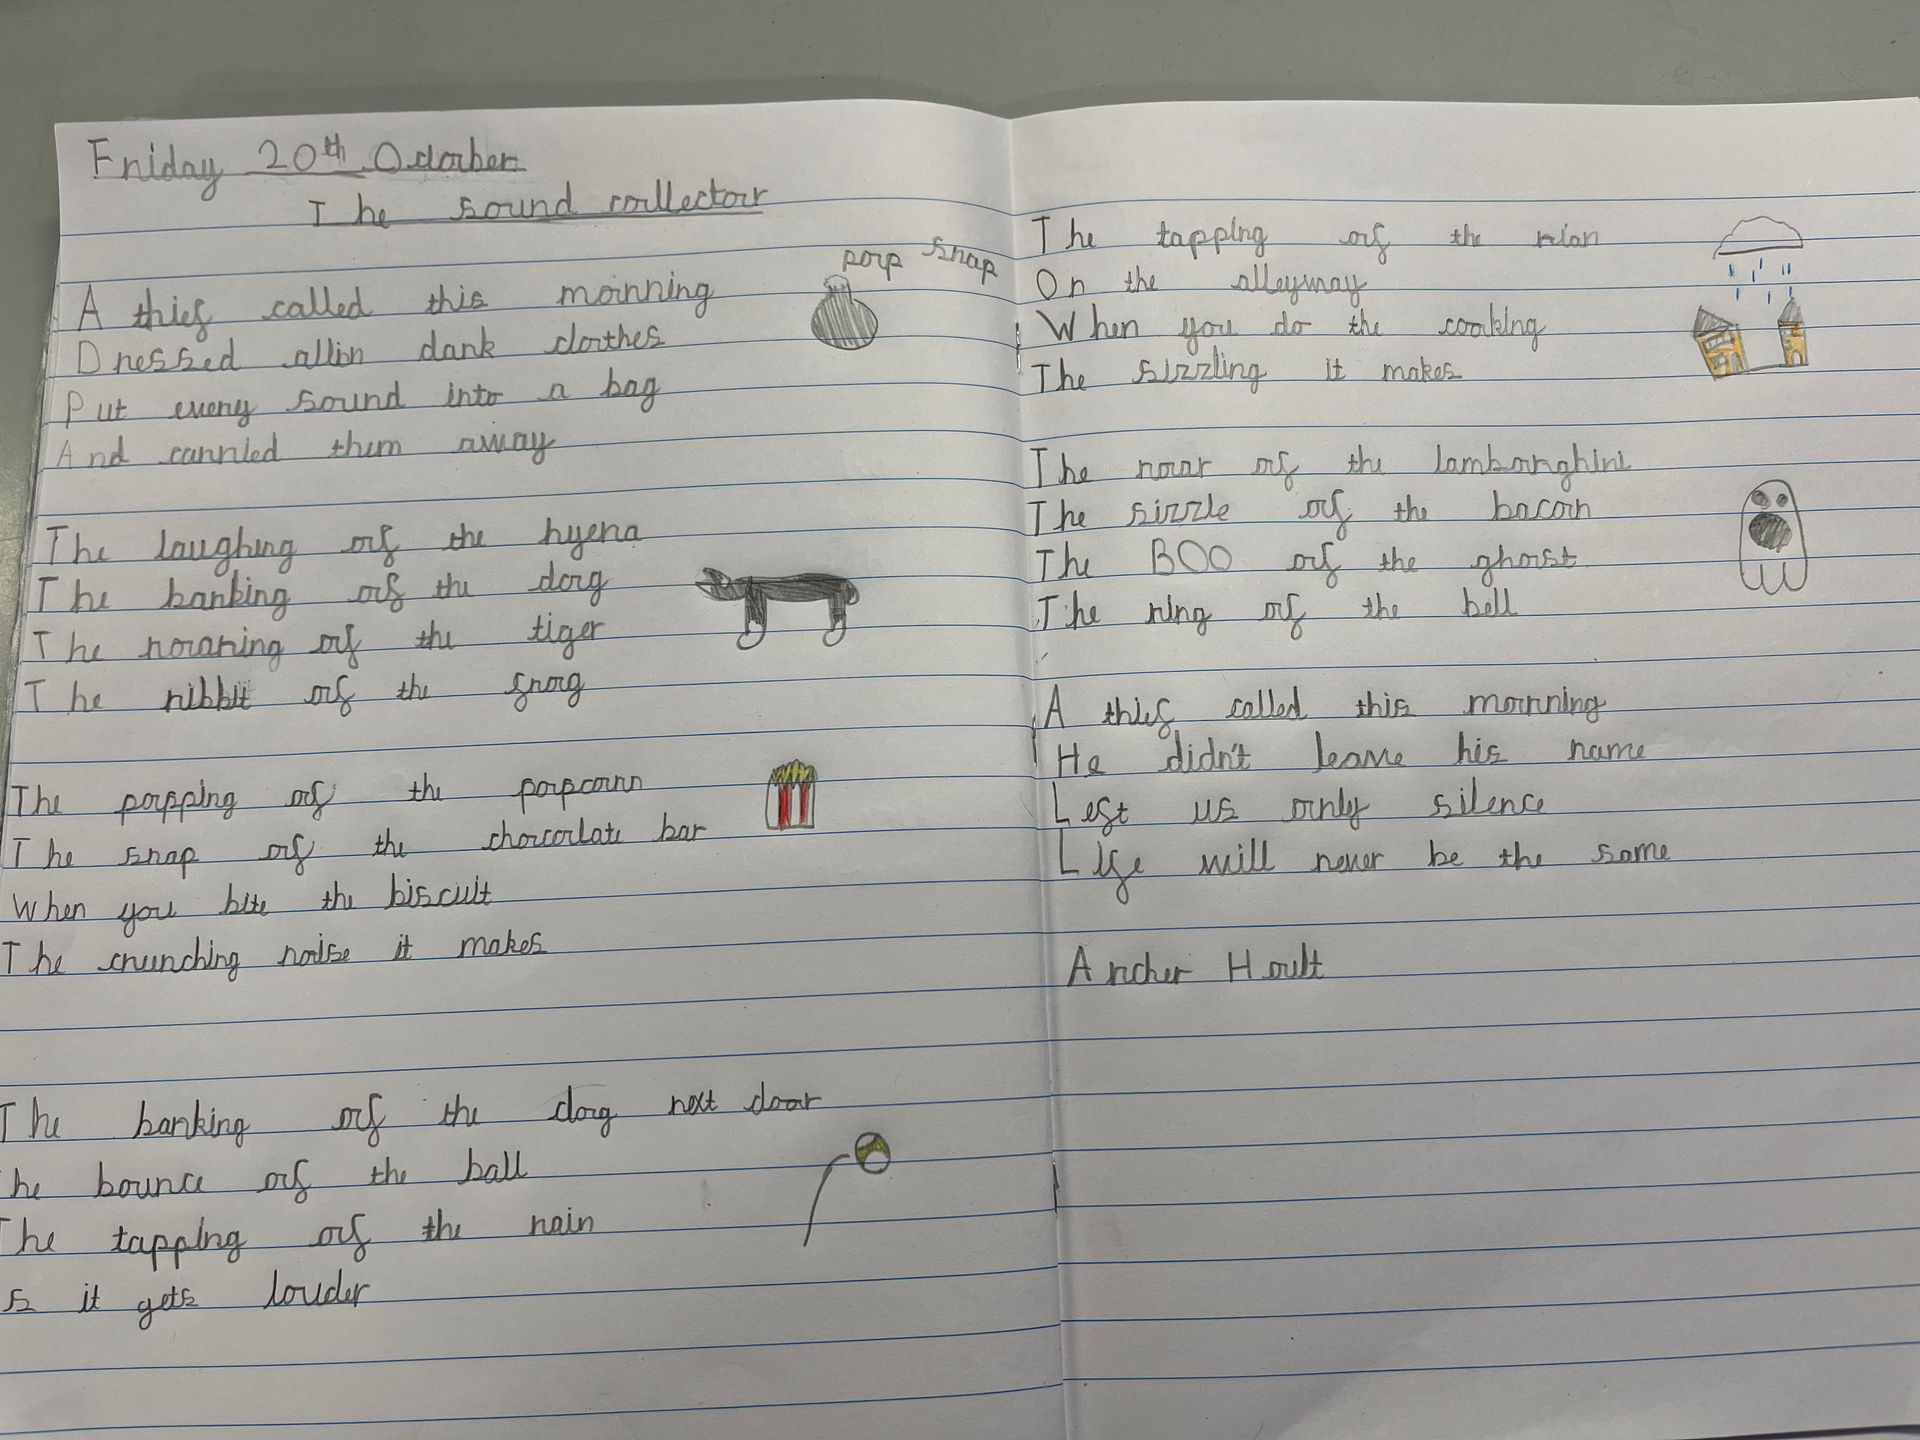 Friday 20th October
The sound collector
pop snap
A thief called this morning
Dressed allin dark clothes
Put every sound into a bag
And carried them away
The laughing of the hyena
The barking of the dog
The roaring of the tiger
The ribbit of the frog
The popping of the popcorn
The snap of the chocolate bar
When you bite the biscuit
The crunching noise it makes
The barking of the dog next door
he bounce of the ball
The tapping of the rain
s it gets louder
The tapping of the rian
On the alleyway
When you do the cooking
The sizzling it makes
The roar of the lamborghini
The sizzle of the bacon
The BOO of the ghost
The ring of the bell
A thief called this morning
He didn't leave his name
Left us only silence
Life will never be the same
Archer Hoult